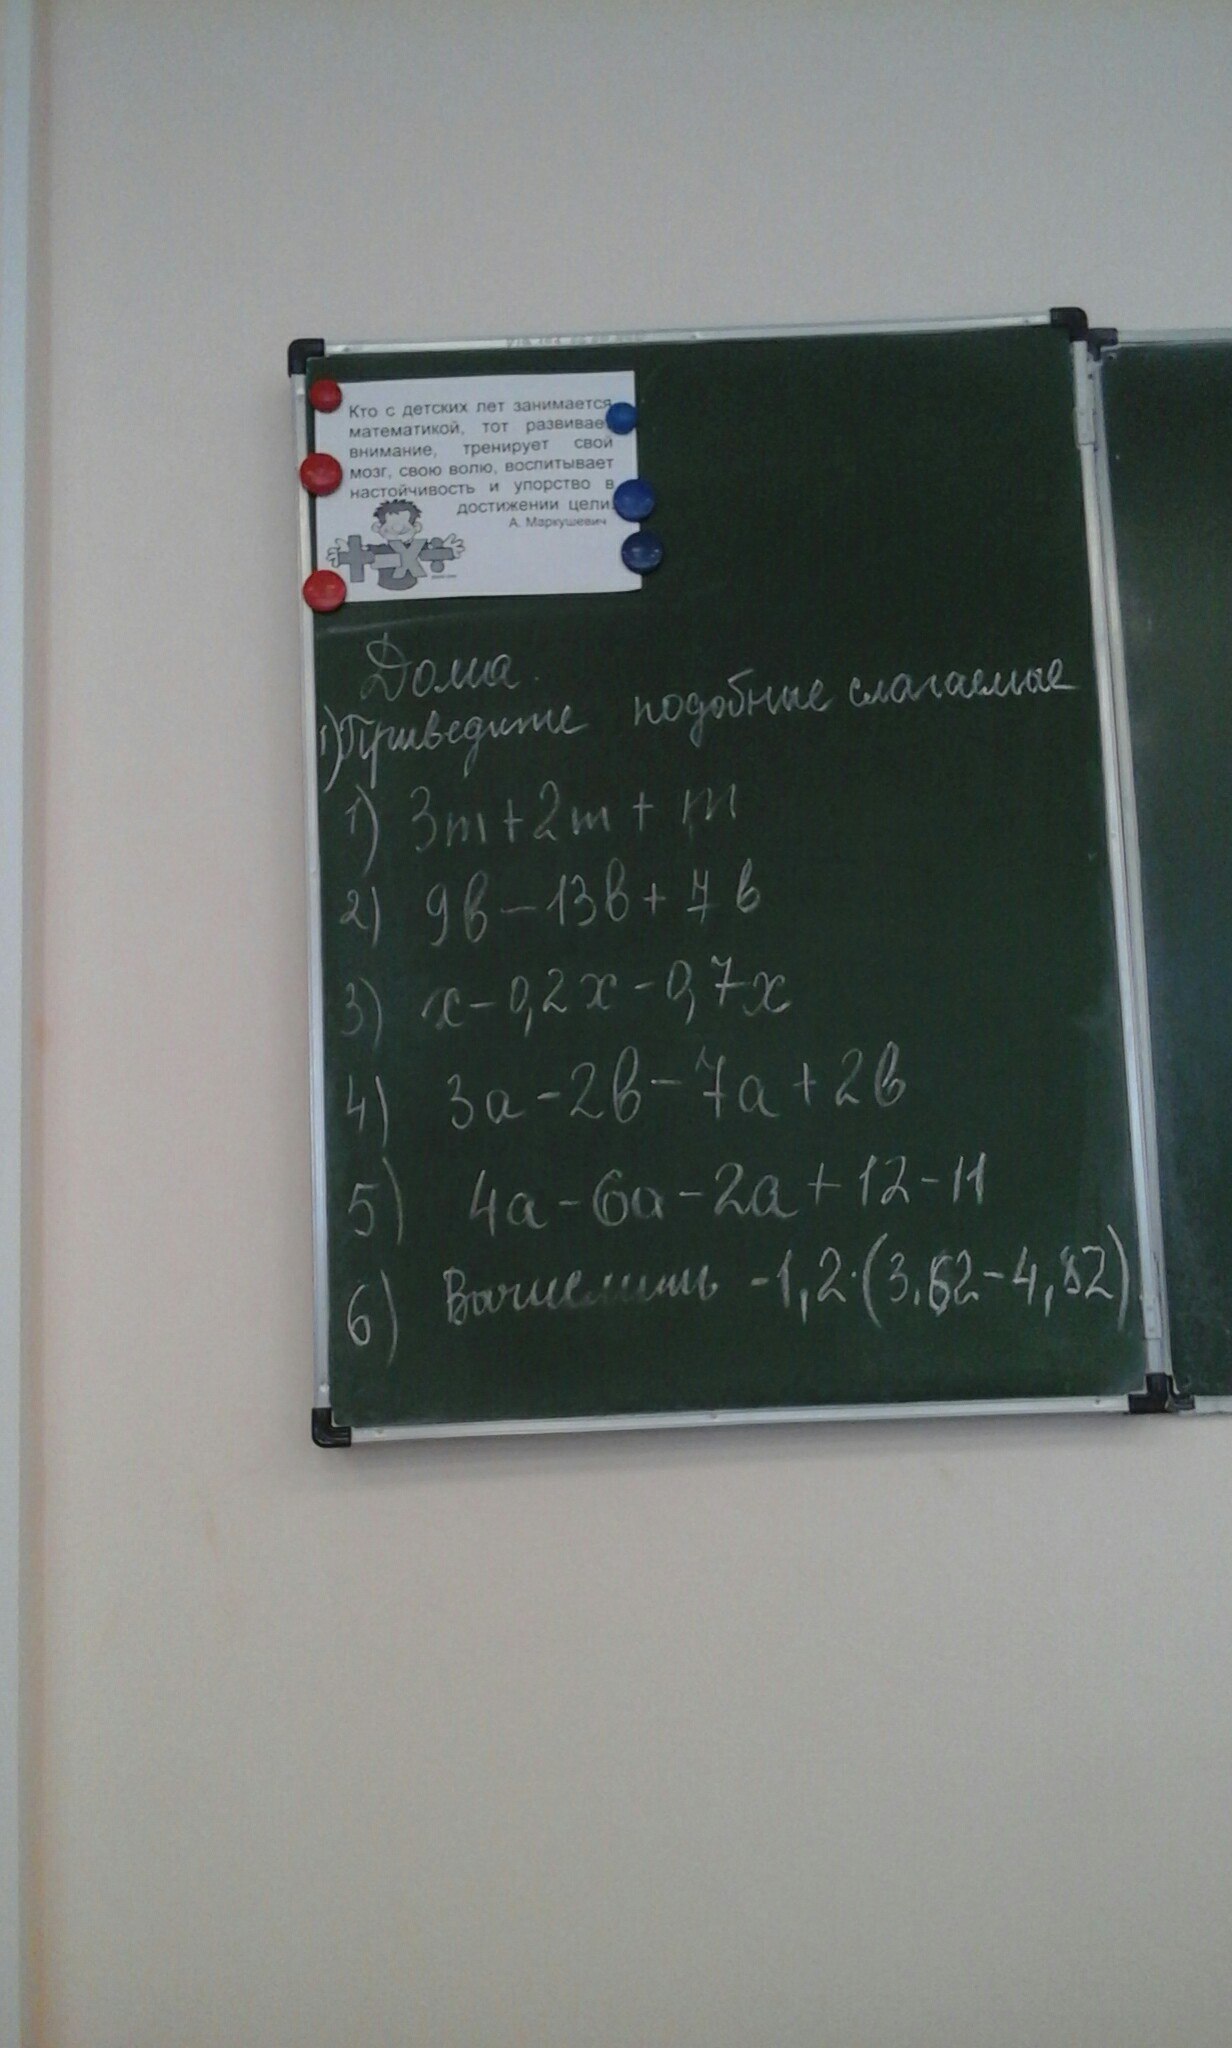 Кто с детских лет занимается
математикой, тот развивает
внимание, тренирует свой
мозг, свою волю, воспитывает
настойчивость и упорство в
достижении цели.
А. Маркушевич
Дома.
1) Приведите подобные слагаемые
1) 3m + 2m + m
2) 9в - 13в + 7в
3) х - 0,2х - 0,7х
4) 3а - 2в - 7а + 2в
5) 4а - 6а - 2а + 12 - 11
6) Вычислить -1,2·(3,62 - 4,82)